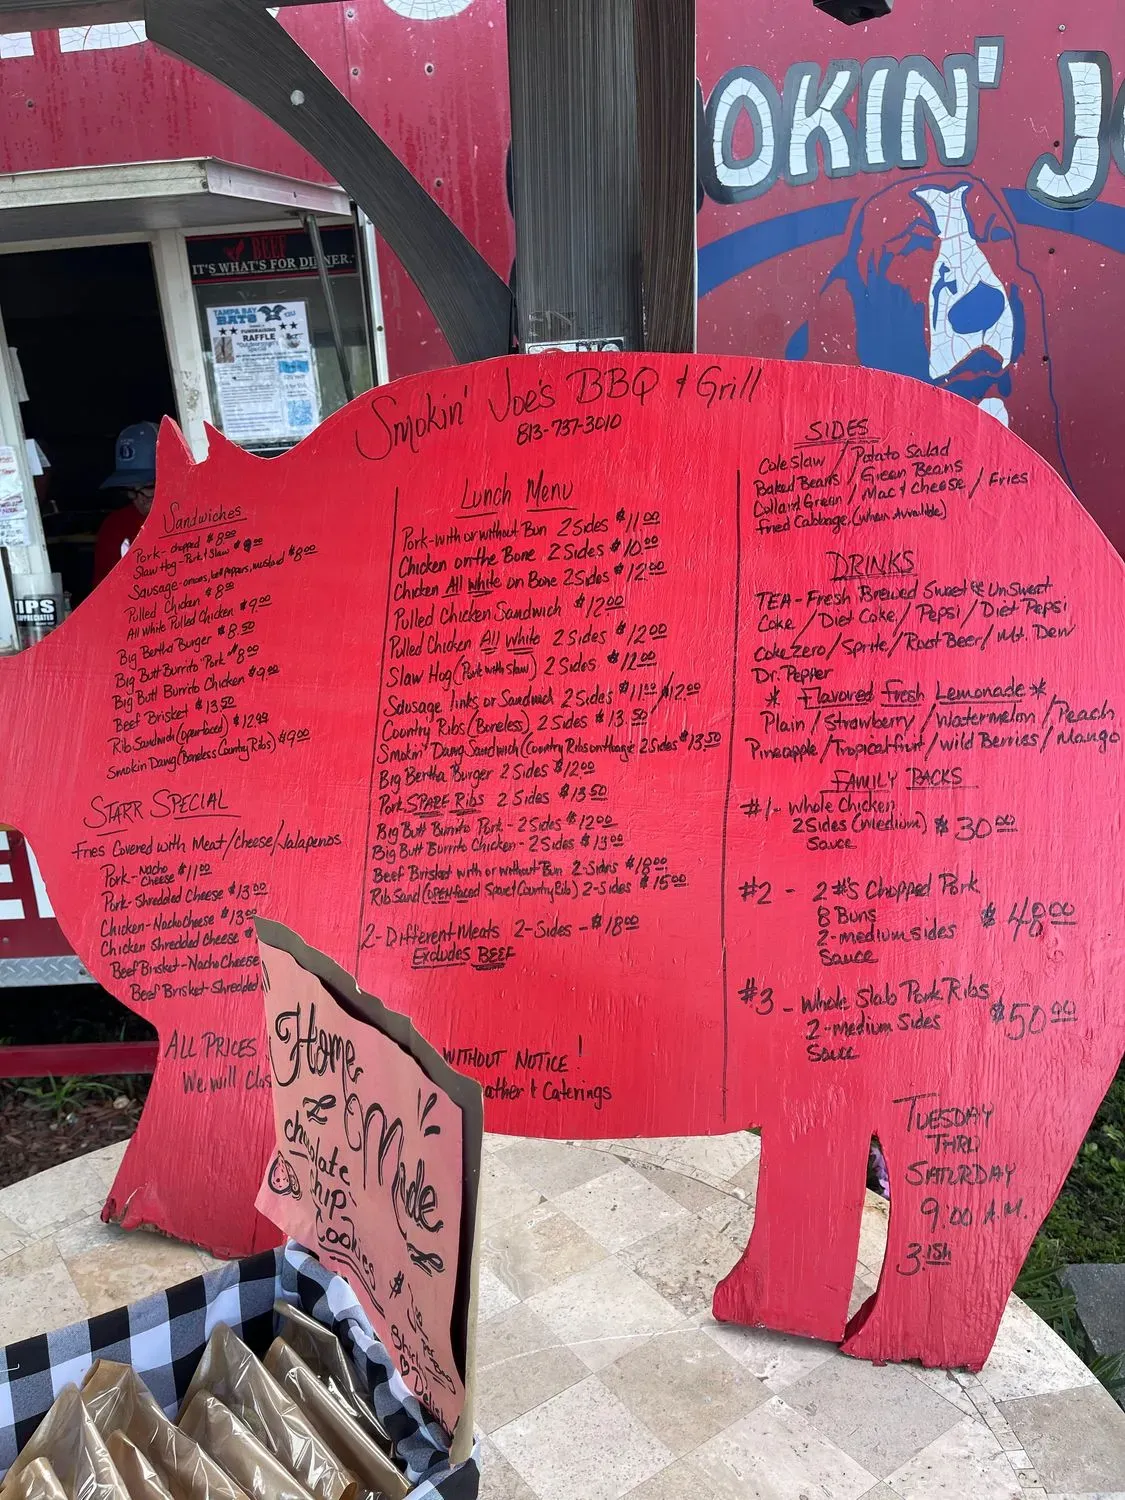 OKIN' J
BEEF
IT'S WHAT'S FOR DINNER.
TAMPA BAY
BATS
FUNDRAISING
RAFFLE
TIPS
APPRECIATED
Smokin' Joe's BBQ & Grill
813-737-3010
Sandwiches
Pork - chopped $8.00
Slaw Hog - Pork & Slaw $9.00
Sausage - onions, bell peppers, mustard $8.00
Pulled Chicken $8.00
All White Pulled Chicken $9.00
Big Bertha Burger $8.50
Big Butt Burrito Pork $8.00
Big Butt Burrito Chicken $9.00
Beef Brisket $13.50
Rib Sandwich (open faced) $12.99
Smokin' Dawg (Boneless Country Ribs) $9.00
STARR SPECIAL
Fries Covered with Meat/Cheese/Jalapenos
Pork - Nacho Cheese $11.00
Pork - Shredded Cheese $13.00
Chicken - Nacho Cheese $13.00
Chicken Shredded Cheese $
Beef Brisket - Nacho Cheese
Beef Brisket - Shredded
ALL PRICES
We will Clos
Lunch Menu
Pork - with or without Bun 2 Sides $11.00
Chicken on the Bone 2 Sides $10.00
Chicken All White on Bone 2 Sides $12.00
Pulled Chicken Sandwich $12.00
Pulled Chicken All White 2 Sides $12.00
Slaw Hog (Pork with Slaw) 2 Sides $12.00
Sausage links or Sandwich 2 Sides $11.00/$12.00
Country Ribs (Boneless) 2 Sides $13.50
Smokin' Dawg Sandwich (Country Ribs on Hoagie 2 Sides $13.50
Big Bertha Burger 2 Sides $12.00
Pork SPARE Ribs 2 Sides $13.50
Big Butt Burrito Pork - 2 Sides $12.00
Big Butt Burrito Chicken - 2 Sides $13.00
Beef Brisket with or without Bun 2-Sides $18.00
Rib Sand (OPEN faced Spare/Country Rib) 2-Sides $15.00
2-Different Meats 2-Sides - $18.00
Excludes BEEF
WITHOUT NOTICE!
ather & Caterings
SIDES
Cole Slaw / Potato Salad
Baked Beans / Green Beans
Collard Green / Mac & Cheese / Fries
Fried Cabbage (When Available)
DRINKS
TEA - Fresh Brewed Sweet & UnSweet
Coke / Diet Coke / Pepsi / Diet Pepsi
Coke Zero / Sprite / Root Beer / Mt. Dew
Dr. Pepper
* Flavored Fresh Lemonade *
Plain / Strawberry / Watermelon / Peach
Pineapple / Tropical fruit / Wild Berries / Mango
FAMILY PACKS
#1 - Whole Chicken
2 Sides (medium) $30.00
Sauce
#2 - 2 #'s Chopped Pork
8 Buns $48.00
2-medium sides
Sauce
#3 - Whole Slab Pork Ribs
2-medium Sides $50.00
Sauce
TUESDAY
THRU
SATURDAY
9:00 A.M.
3:ish
Home
Made
chocolate
chip
Cookies